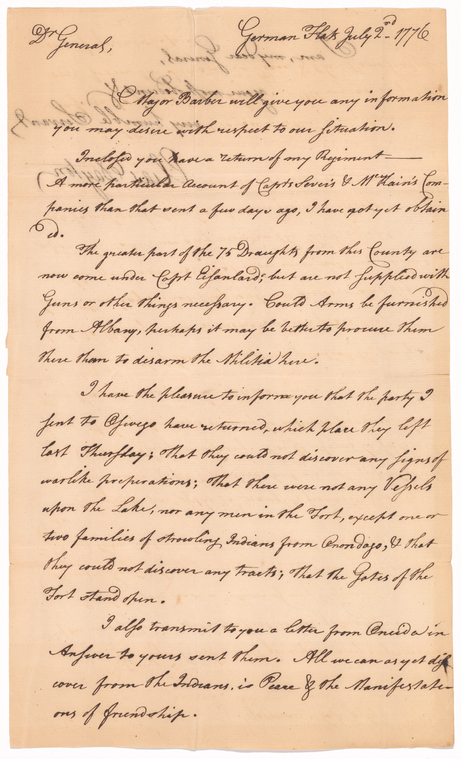 Dr General,
German Flats July 2nd 1776
Major Barber will give you any information
you may desire with respect to our Situation.
Inclosed you have a return of my Regiment —
A more particular Account of Capts & Com-
panies than that sent a few days ago, I have not yet obtain
ed.
The greater part of the 75 Draughts from this County are
now come under Capt Eisanlard; but are not supplied with
Guns or other things necessary. Could Arms be furnished
from Albany, perhaps it may be better to procure them
there than to disarm the Militia here.
I have the pleasure to inform you that the party I
sent to Oswego have returned, which place they left
last Thursday; That they could not discover any signs of
warlike preparations; That there were not any Vessels
upon the Lake, nor any men in the Fort, except one or
two families of strowling Indians from Onondago, & that
they could not discover any tracts; that the Gates of the
Fort stand open.
I also transmit to you a letter from Oneida in
Answer to yours sent them. All we can as yet dis
cover from the Indians, is Peace & the Manifestati-
ons of friendship.